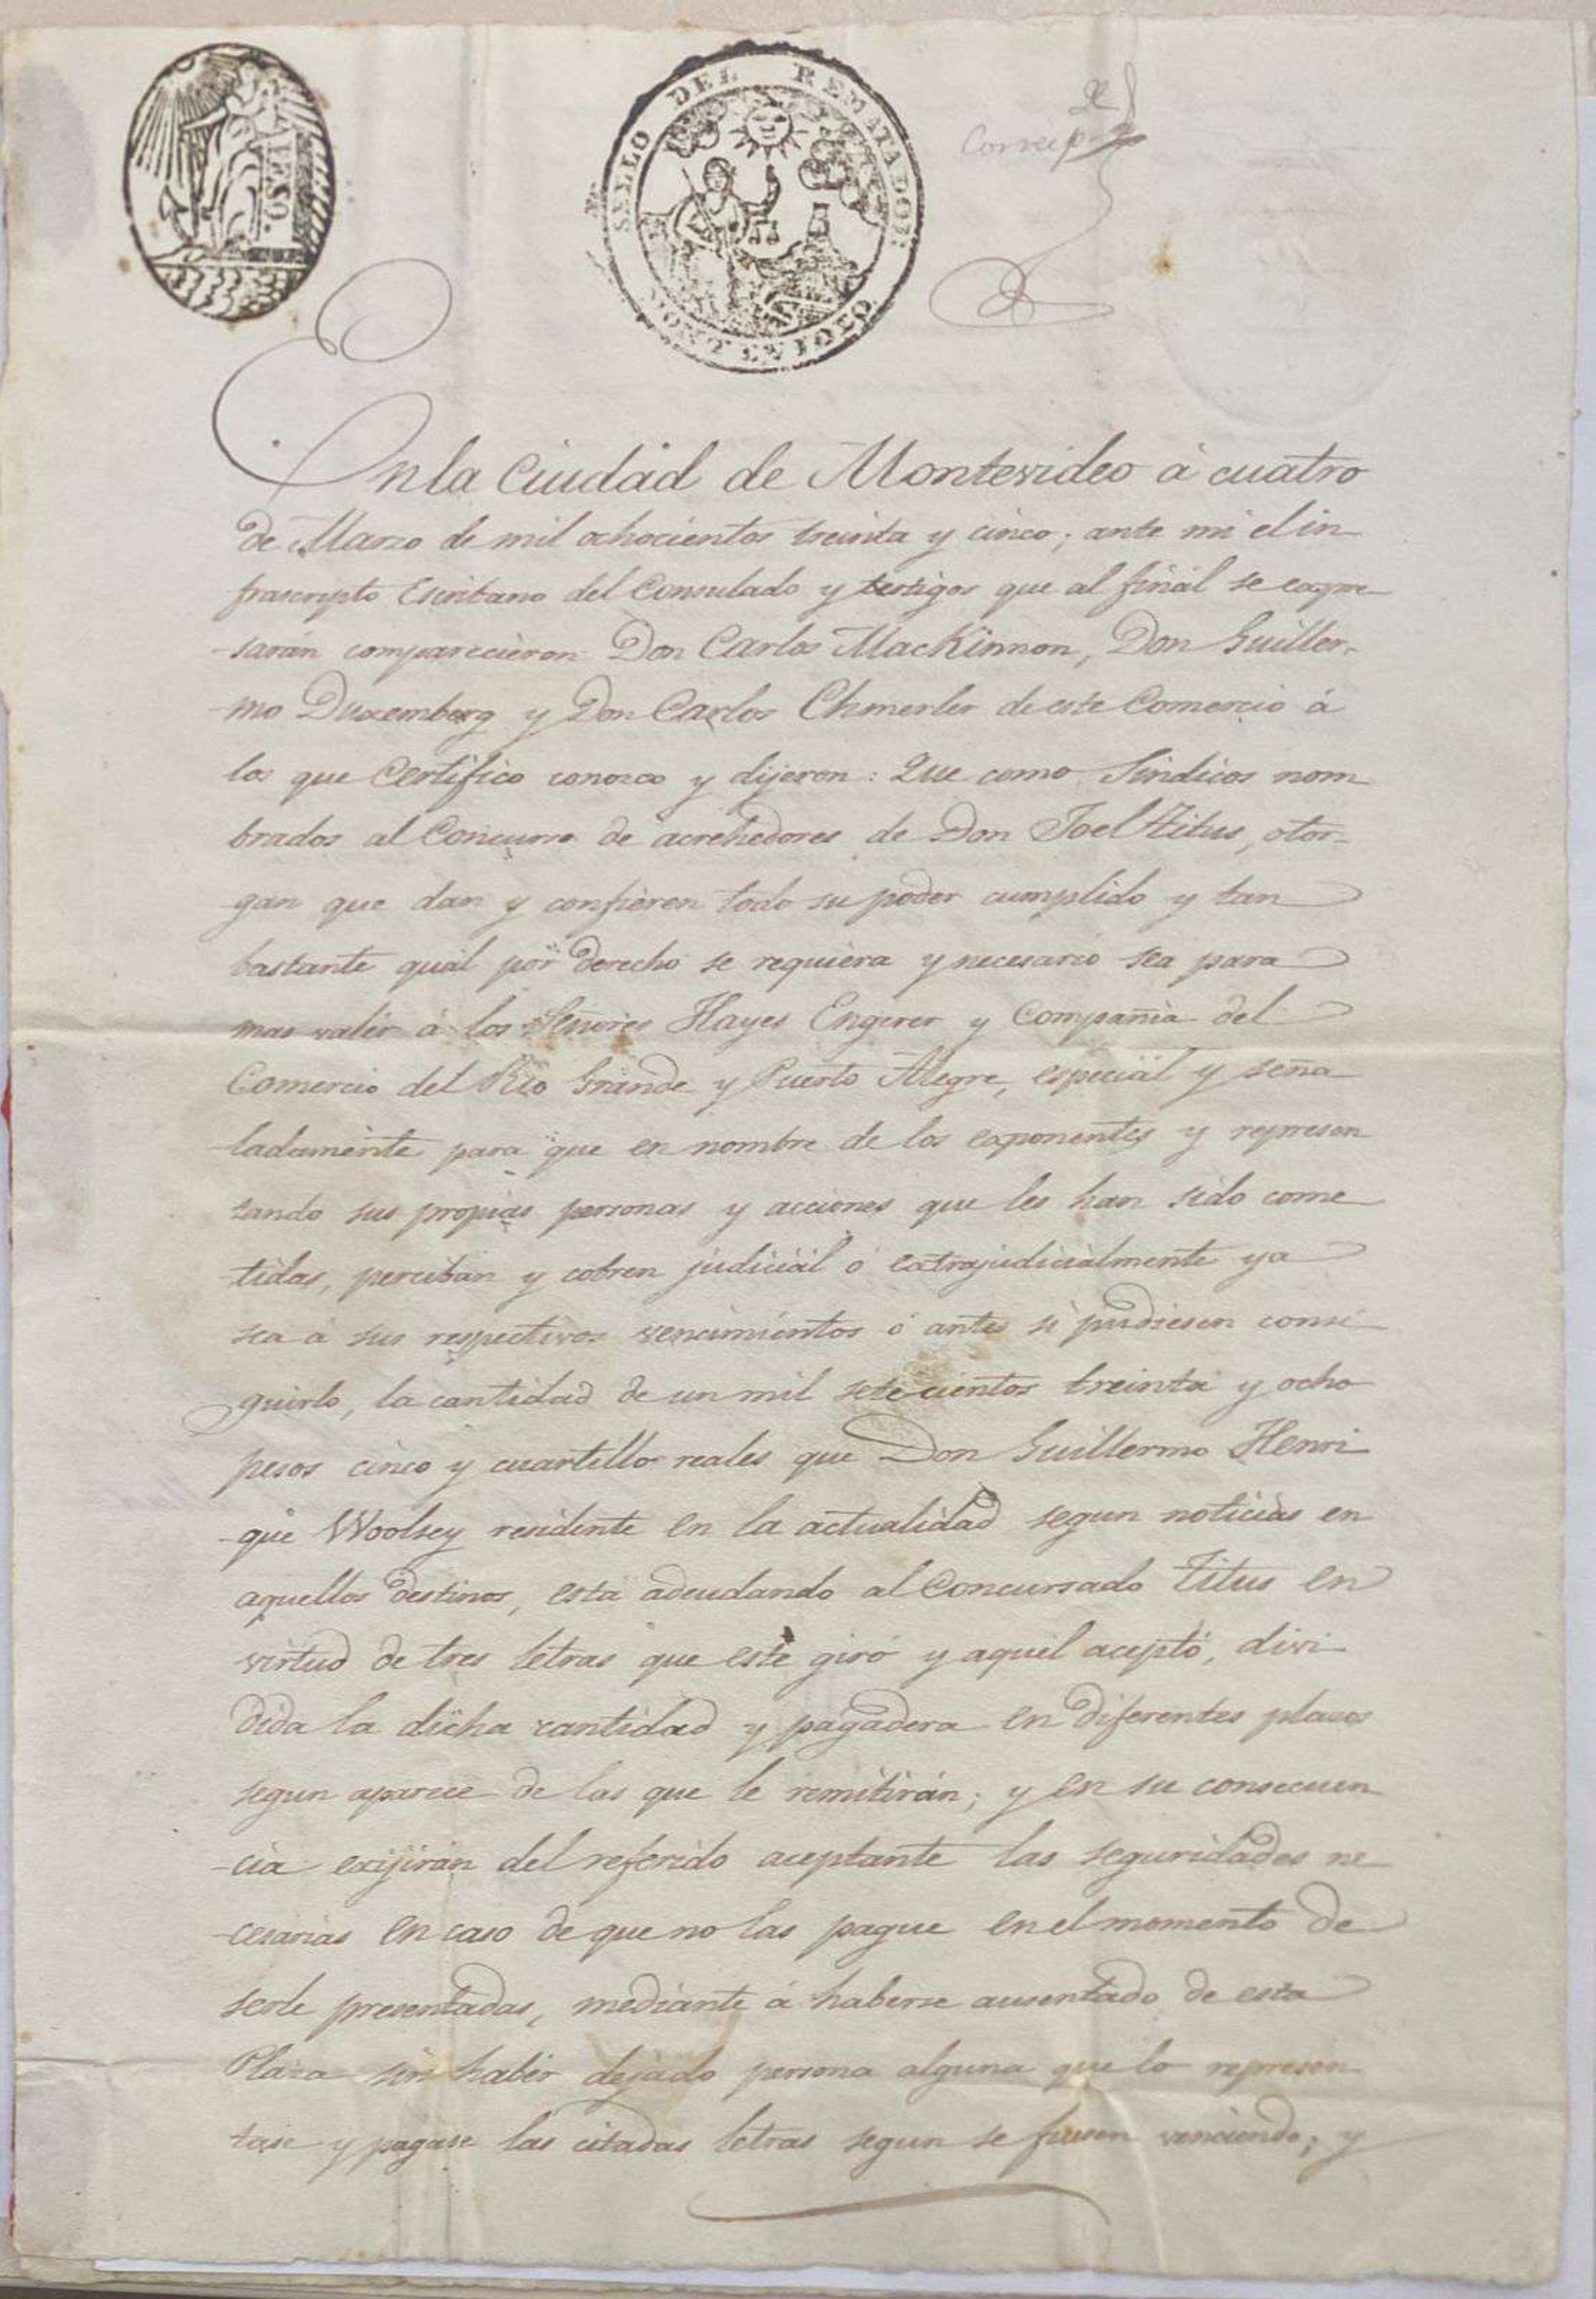 SELLO DEL REMATADOR
MONTEVIDEO
En la Ciudad de Montevideo à cuatro
de Marzo de mil ochocientos treinta y cinco; ante mi el in
frascripto Escribano del Consulado y testigos que al final se expre
-sarán comparecieron Don Carlos MacKinnon, Don Guiller-
-mo Duxemberg y Don Carlos Chmerler de este Comercio á
los que Certifico conozco y dijeron: Que como Sindicos nom
brados al Concurso de acrehedores de Don Joel Titus, otor-
gan que dan y confieren todo su poder cumplido y tan
bastante qual por derecho se requiera y necesario sea para
mas valer á los Señores Hayes Engerer y Compañia del
Comercio del Rio Grande y Puerto Alegre, especial y seña
-ladamente para que en nombre de los exponentes y represen
tando sus propias personas y acciones que les han sido come
-tidas, perciban y cobren judicial ó extrajudicialmente ya
sea á sus respectivos vencimientos ó antes si pudiesen conse
guirlo, la cantidad de un mil setecientos treinta y ocho
pesos cinco y cuartillo reales que Don Guillermo Henri
-que Woolsey residente en la actualidad segun noticias en
aquellos destinos, está adeudando al Concursado Titus en
virtud de tres letras que este giró y aquel aceptó, divi
dida la dicha cantidad y pagadera en diferentes plazos
segun aparece de las que le remitirán; y en su consecuen
-cia exijirán del referido aceptante las seguridades ne
-cesarias en caso de que no las pague en el momento de
serle presentadas, mediante á haberse ausentado de esta
Plaza sin haber dejado persona alguna que lo represen
tase y pagase las citadas letras segun se fuesen venciendo; y